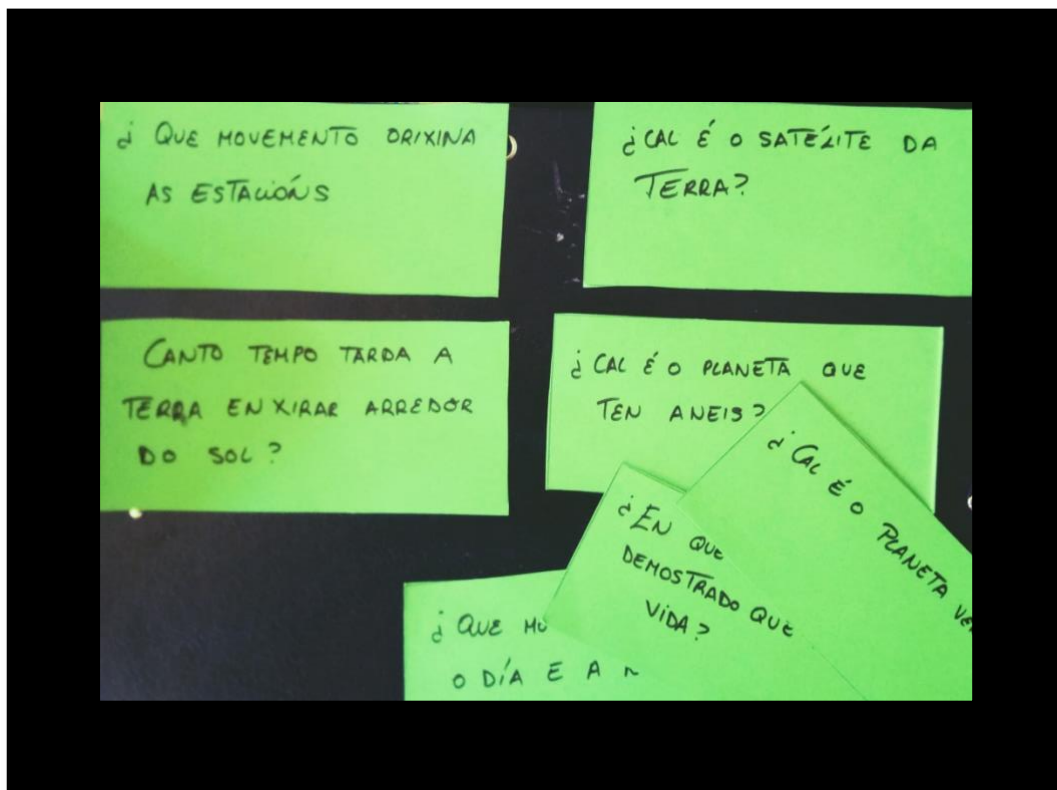 ¿ QUE MOVEMENTO ORIXINA
AS ESTACIÓNS
¿ CAL É O SATÉLITE DA
TERRA?
CANTO TEMPO TARDA A
TERRA EN XIRAR ARREDOR
DO SOL?
¿ CAL É O PLANETA QUE
TEN ANEIS?
¿ CAL É O
PLANETA
¿ EN QUE
DEMOSTRADO QUE
VIDA?
¿ QUE
O DÍA E A